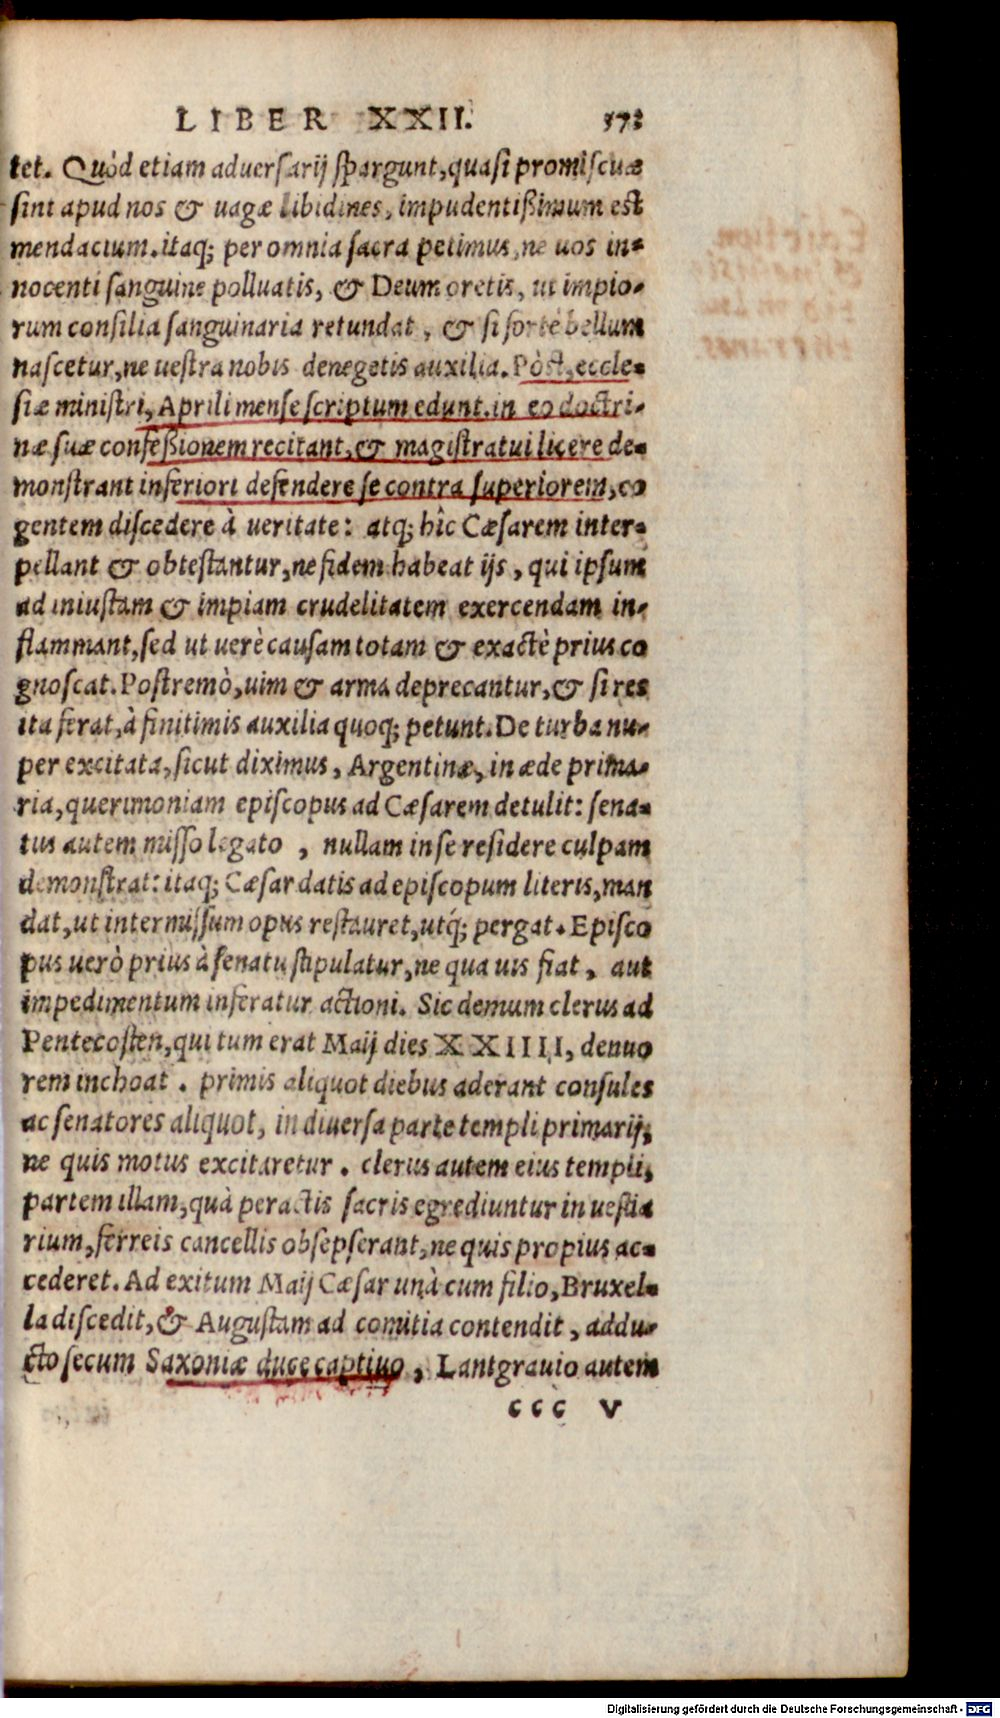 LIBER XXII. 573
tet. Quòd etiam aduersarij spargunt, quasi promiscuæ
sint apud nos & uagæ libidines, impudentißimum est
mendacium. itaq; per omnia sacra petimus, ne uos in-
nocenti sanguine polluatis, & Deum oretis, ut impio-
rum consilia sanguinaria retundat, & si fortè bellum
nascetur, ne uestra nobis denegetis auxilia. Pòst, eccle-
siæ ministri, Aprili mense scriptum edunt. in eo doctri-
næ suæ confeßionem recitant, & magistratui licere de-
monstrant inferiori defendere se contra superiorem, co
gentem discedere à ueritate: atq; hîc Cæsarem inter-
pellant & obtestantur, ne fidem habeat ijs, qui ipsum
ad iniustam & impiam crudelitatem exercendam in-
flammant, sed ut uerè causam totam & exactè prius co
gnoscat. Postremò, uim & arma deprecantur, & si res
ita ferat, à finitimis auxilia quoq; petunt. De turba nu-
per excitata, sicut diximus, Argentinæ, in æde prima-
ria, querimoniam episcopus ad Cæsarem detulit: sena-
tus autem misso legato, nullam in se residere culpam
demonstrat: itaq; Cæsar datis ad episcopum literis, man
dat, ut intermissum opus restauret, utq́; pergat. Episco
pus uerò prius à senatu stipulatur, ne qua uis fiat, aut
impedimentum inferatur actioni. Sic demum clerus ad
Pentecosten, qui tum erat Maij dies XXIIII, denuo
rem inchoat. primis aliquot diebus aderant consules
ac senatores aliquot, in diuersa parte templi primarij,
ne quis motus excitaretur. clerus autem eius templi,
partem illam, quà peractis sacris egrediuntur in uestia
rium, ferreis cancellis obsepserant, ne quis propius ac-
cederet. Ad exitum Maij Cæsar unà cum filio, Bruxel-
la discedit, & Augustam ad comitia contendit, addu-
cto secum Saxoniæ duce captiuo, Lantgrauio autem
ccc v
Digitalisierung gefördert durch die Deutsche Forschungsgemeinschaft - DFG